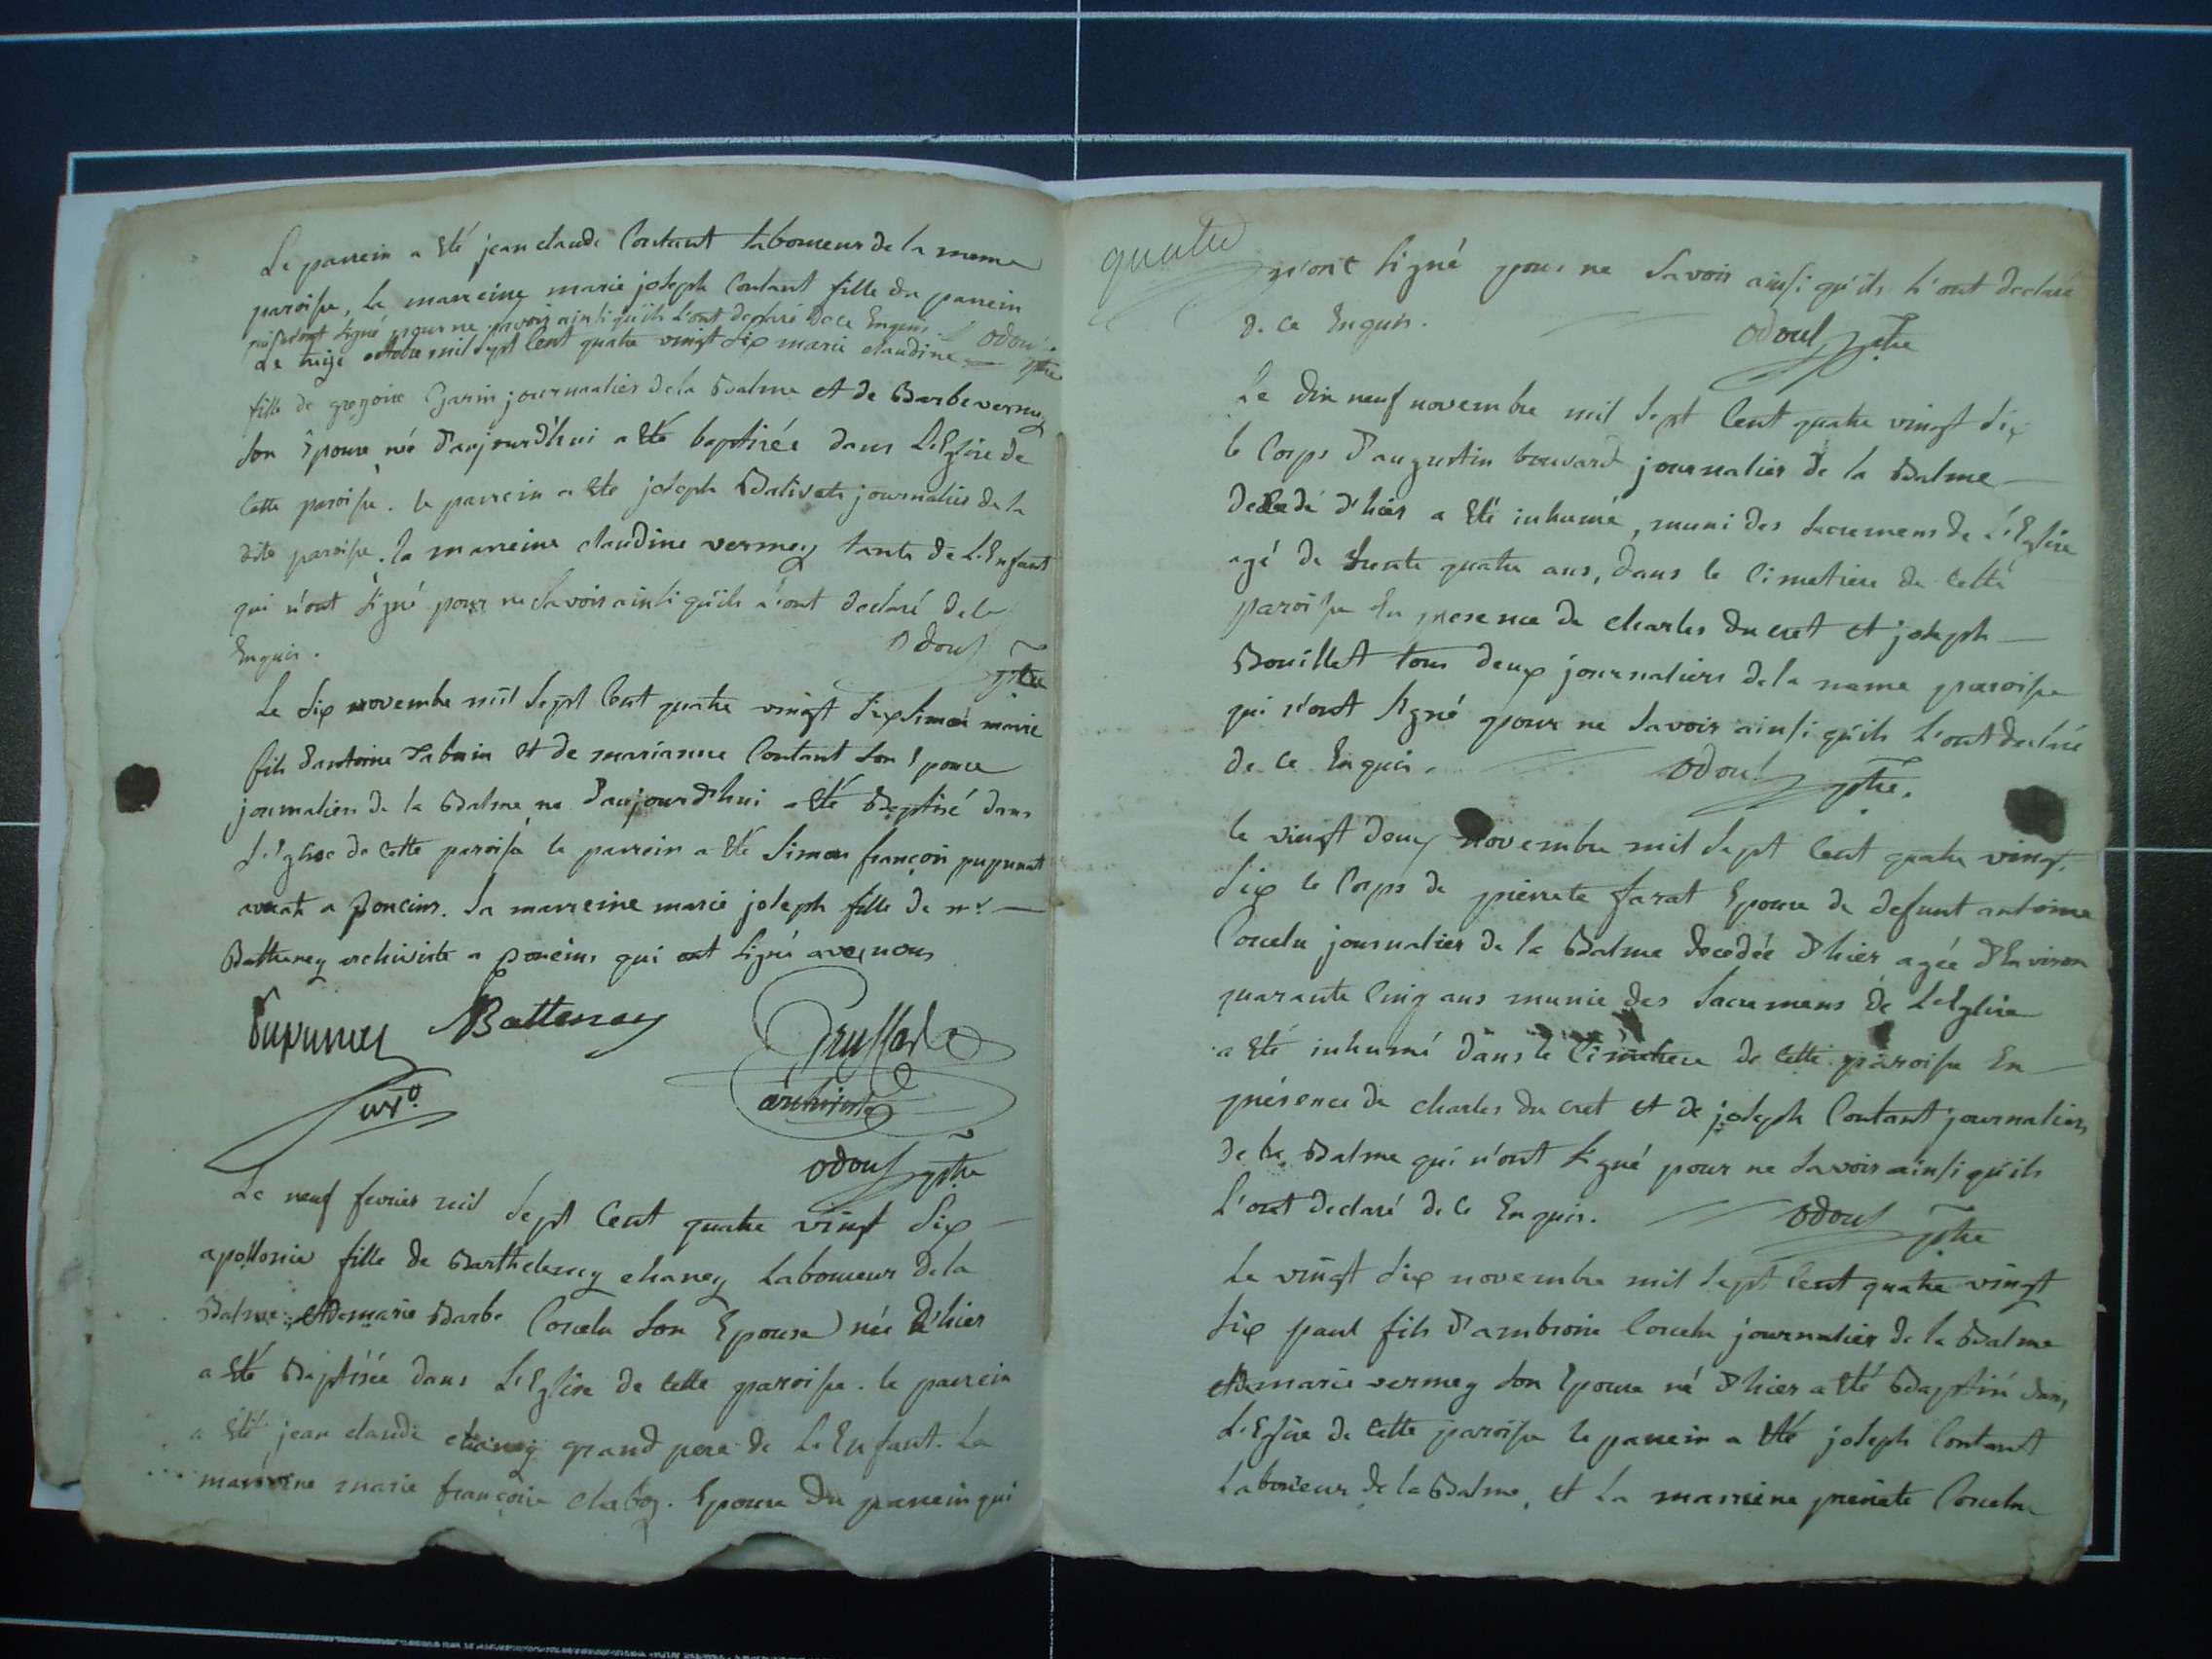 Le parrein a Eté jean claude Contant laboureur de la meme
paroisse, la marreine marie joseph Contant fille du parrein
qui n'ont signé pour ne savoir ainsi qu'ils l'ont declaré de ce Enquis. Odoul
Le treize octobre mil sept Cent quatre vingt dix marie claudine ptre
fille de gregoire journalier de la Balme et de Barbe vermey
son Epouse née d'aujourd'hui a Eté baptisée dans L'Eglise de
Cette paroisse. le parrein a Eté joseph Balivet journalier de la
dite paroisse. la marreine claudine vermey tante de L'Enfant
qui n'ont signé pour ne savoir ainsi qu'ils l'ont declaré de ce
Enquis. Odoul
ptre
Le dix novembre mil sept Cent quatre vingt dix simon marie
fils d'antoine et de marianne Contant son Epouse
journalier de la Balme né d'aujourd'hui a Eté Baptisé dans
L'Eglise de Cette paroisse le parrein a Eté simon françois pupunat
avocat a Poncins. la marreine marie joseph fille de mr
Batteney archiviste a Poncins qui ont signé avec nous
Pupunat Batteney
archiviste
Odoul ptre
Le neuf fevrier mil sept Cent quatre vingt dix
apollonie fille de Barthelemy chaney Laboureur de la
Balme, et de marie Barbe Corcelu son Epouse née d'hier
a Eté Baptisée dans L'Eglise de Cette paroisse. le parrein
a Eté jean claude chaney grand pere de L'Enfant. La
marreine marie françoise Epouse du parrein qui
quatre
n'ont signé pour ne savoir ainsi qu'ils l'ont declaré
de ce Enquis.
Odoul ptre
Le dix neuf novembre mil sept Cent quatre vingt dix
le Corps d'augustin bouvard journalier de la Balme
decedé d'hier a Eté inhumé, muni des sacremens de L'Eglise
agé de trente quatre ans, dans le Cimetiere de Cette
paroisse En presence de charles du cret et joseph
Bouillet tous deux journaliers de la meme paroisse
qui n'ont signé pour ne savoir ainsi qu'ils l'ont declaré
de ce Enquis. Odoul ptre.
le vingt deux novembre mil sept Cent quatre vingt
dix le Corps de pierrete farat Epouse de defunt antoine
Corcelu journalier de la Balme decedée d'hier agée d'Environ
quarante Cinq ans munie des sacremens de L'Eglise
a Eté inhumé dans le Cimetiere de Cette paroisse En
présence de charles du cret et de joseph Contant journaliers
de la Balme qui n'ont signé pour ne savoir ainsi qu'ils
l'ont declaré de ce Enquis. Odoul ptre
Le vingt six novembre mil sept Cent quatre vingt
dix paul fils d'ambroise Corcelu journalier de la Balme
et de marie vermey son Epouse né d'hier a Eté Baptisé dans
L'Eglise de Cette paroisse le parrein a Eté joseph Contant
Laboureur de la Balme, et La marreine pierrete Corcelu